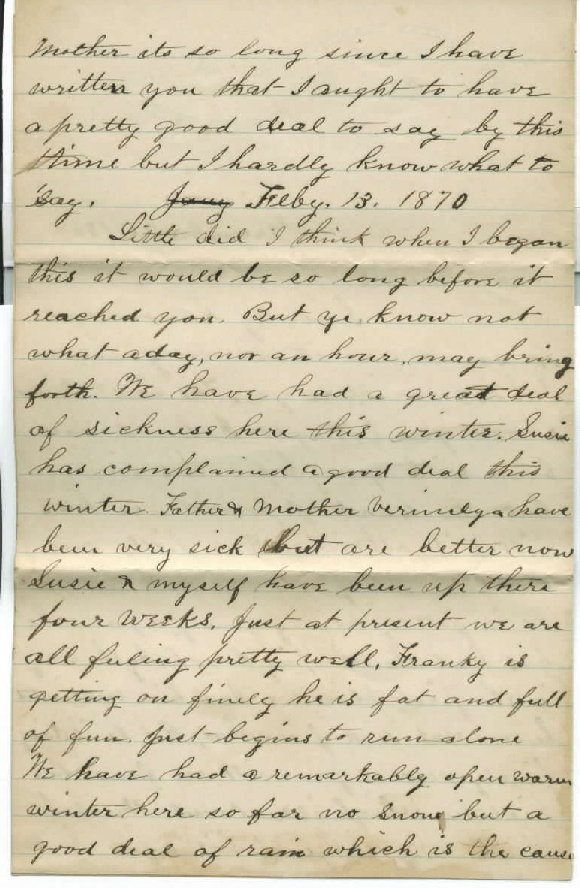 Mother its so long since I have
written you that I aught to have
a pretty good deal to say by this
time but I hardly know what to
say. Jany Feby. 13. 1870
Little did I think when I began
this it would be so long before it
reached you. But ye know not
what a day, nor an hour, may bring
forth. We have had a great deal
of sickness here this winter. Susie
has complained a good deal this
winter. Father & Mother Vermilya have
been very sick but are better now
Susie & myself have been up there
four weeks. Just at present we are
all feeling pretty well, Franky is
getting on finely he is fat and full
of fun. Just begins to run alone
We have had a remarkably open warm
winter here so far no snow but a
good deal of rain which is the cause